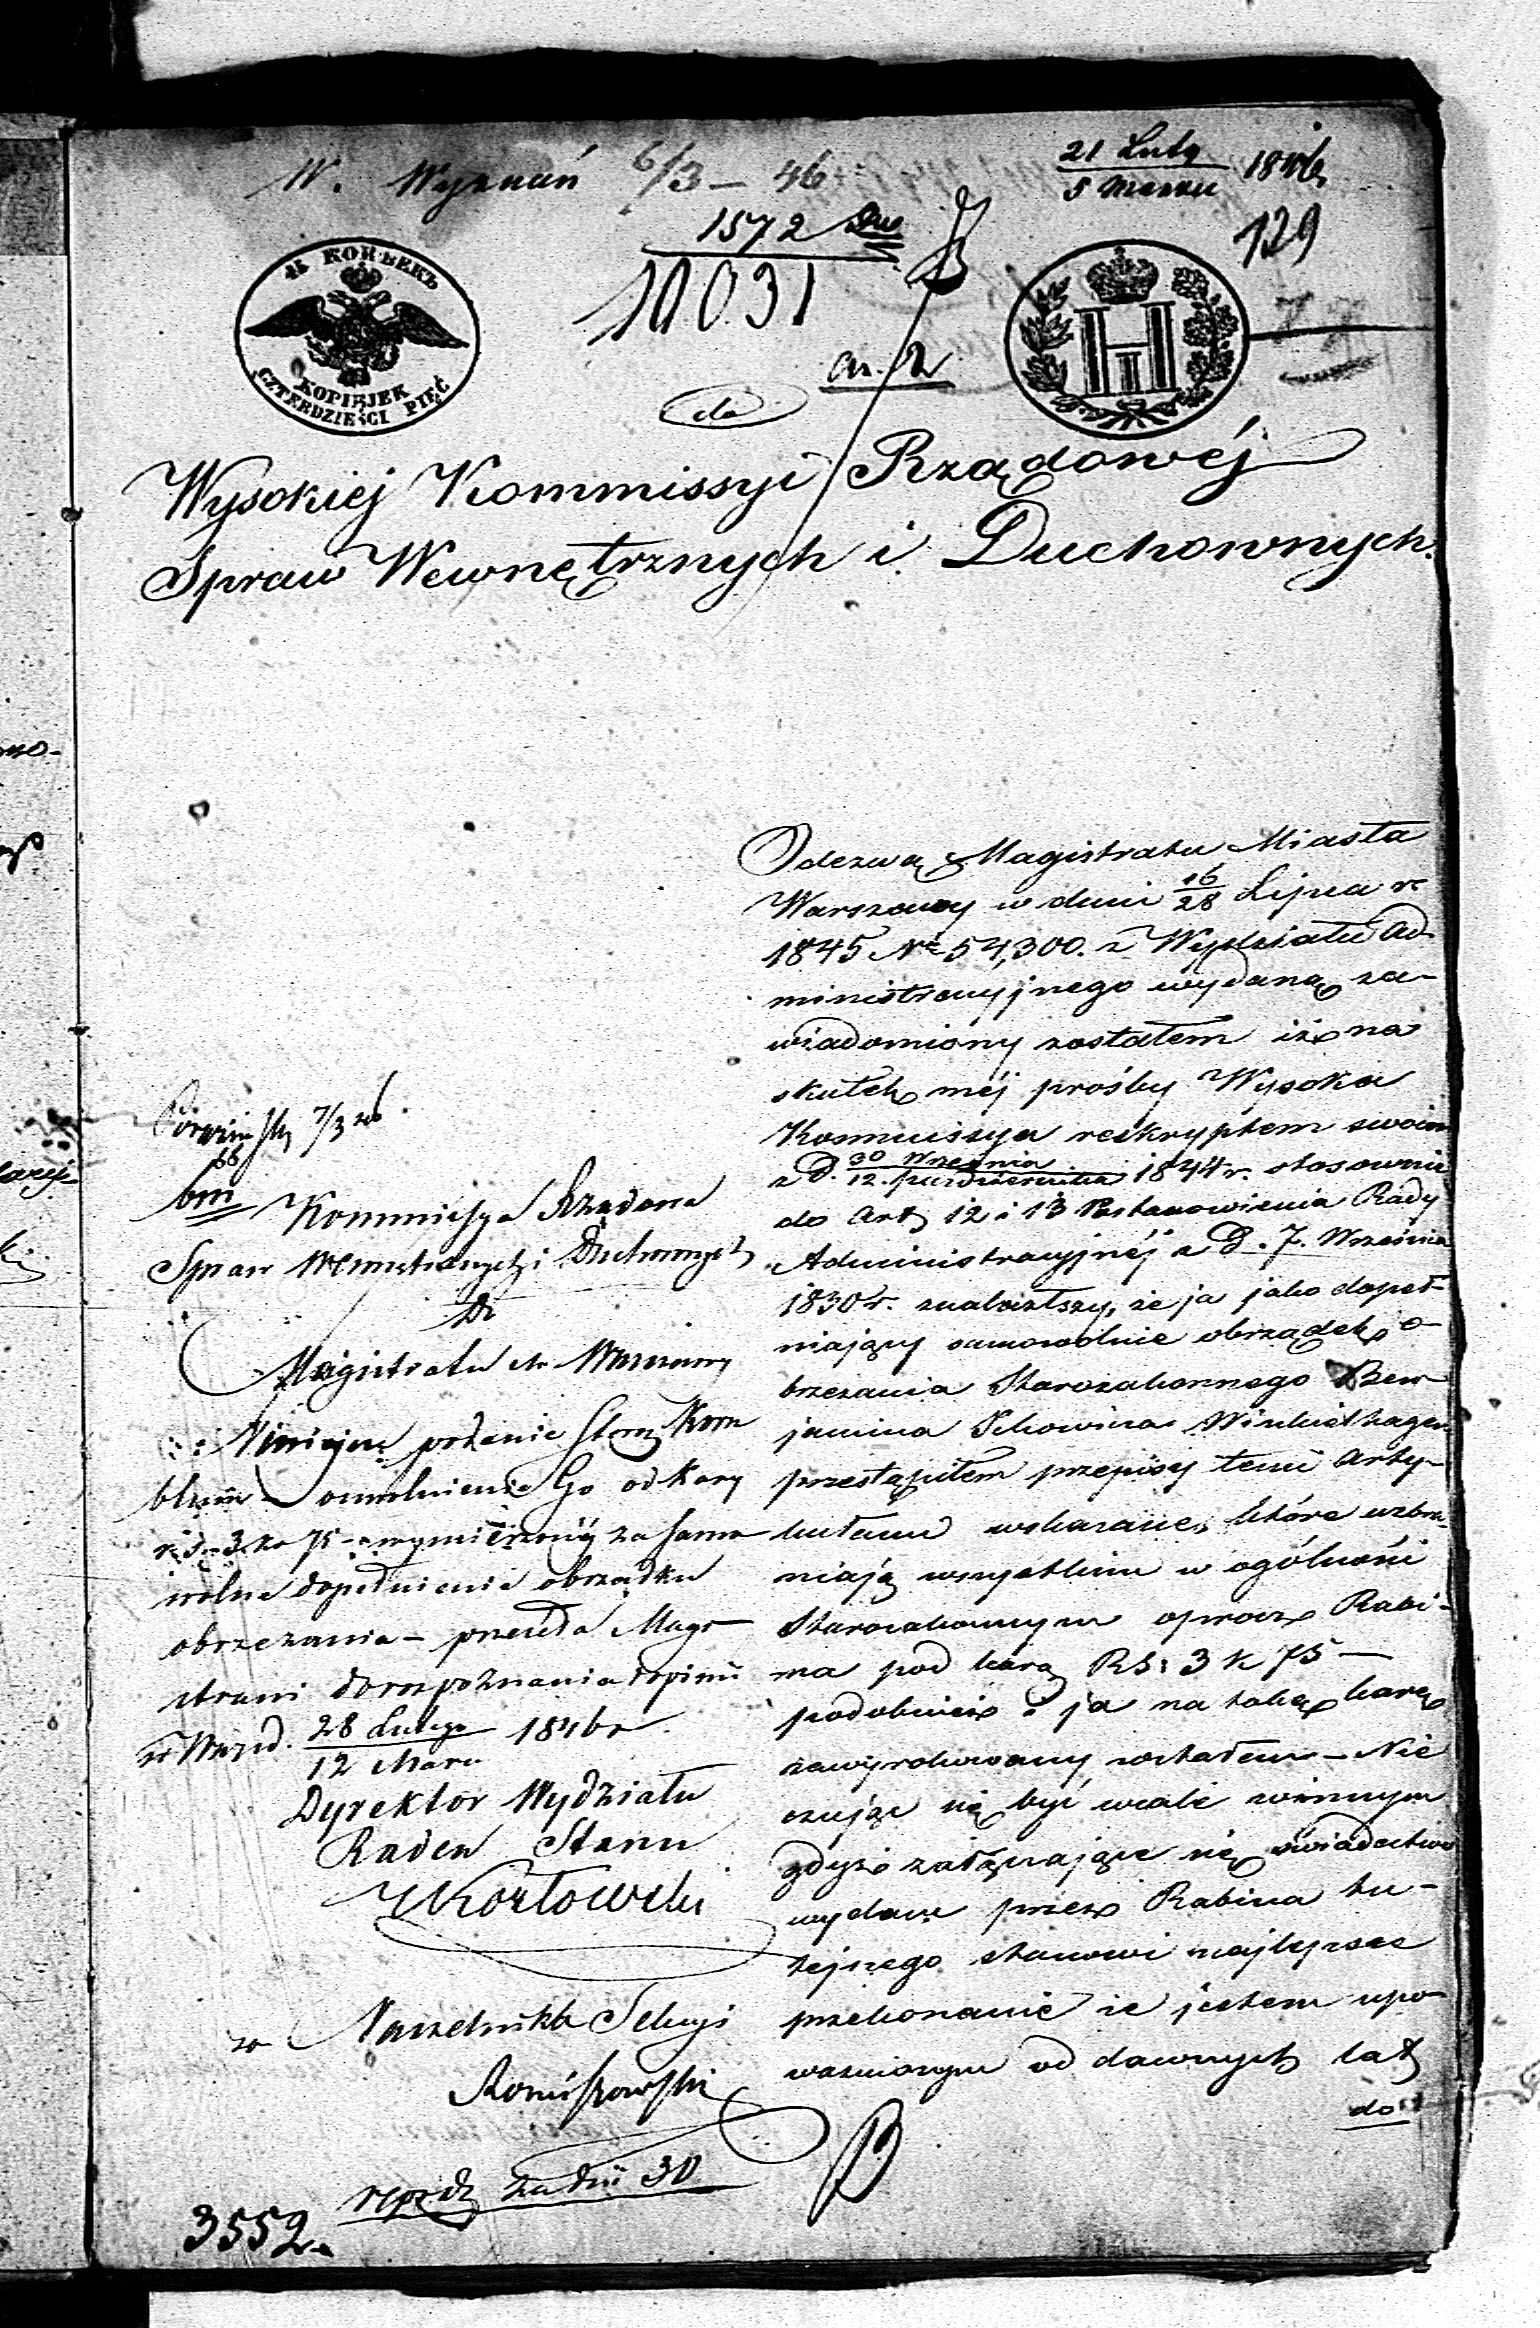 W. Wyznań 6/3 – 46
21 Luty
5 Marca 1846
129
1572
11031
45 КОПѢЕКЪ
KOPIEJEK
CZTERDZIEŚCI PIĘĆ
an. 2
do
Wysokiej Kommissyi Rządowéj
Spraw Wewnętrznych i Duchownych.
Odezwą Magistratu Miasta
Warszawy w dniu 16/28 Lipca r.
1845 No 54,300. z Wydziału Ad-
ministracyjnego wydaną za-
wiadomiony zostałem iż na
skutek méj prośby Wysoka
Kommissya reskryptem swoim
z D. 30 Września / 12. Października 1844 r. stosownie
do Art 12 i 13 Postanowienia Rady
Administracyjnéj z D. 7. Września
1830 r. znalazłszy, że ja jako dopeł-
niający samowolnie obrządek o-
brzezania Starozakonnego Ben-
jamina Ickowicza Winkielhagen
przestąpiłem przepisy temi Arty-
kułami wskazane, które wzbra-
niają wszystkim w ogólności
Starozakonnym oprócz Rabi-
na pod karą RS: 3 k 75 –
podobnież i ja na takąż karę
zawyrokowany zostałem – Nie
czując się być wcale winnym
gdyż załączające się świadectwo
wydane przez Rabina tu-
tejszego stanowi najlepsze
przekonanie że jestem upo-
ważnionym od dawnych lat
do
7/3 46
bm
Kommissya Rządowa
Spraw Wewnętrznych i Duchownych
Do
Magistratu M. Warszawy
Niniejsze podanie Storz Korn
blum o uwolnienie Go od Kary
rs. 3 ko 75 – wymierzonéj za samo
wolne dopełnienie obrządku
obrzezania – przesyła Magi-
stratowi do rozpoznania i opinii
w Warsz d. 28 Lutego / 12 Marc. 1846 r.
Dyrektor Wydziału
Radca Stanu
Kozłowski
za Naczelnika Sekcyi
repr. dz za dni 30
3552.